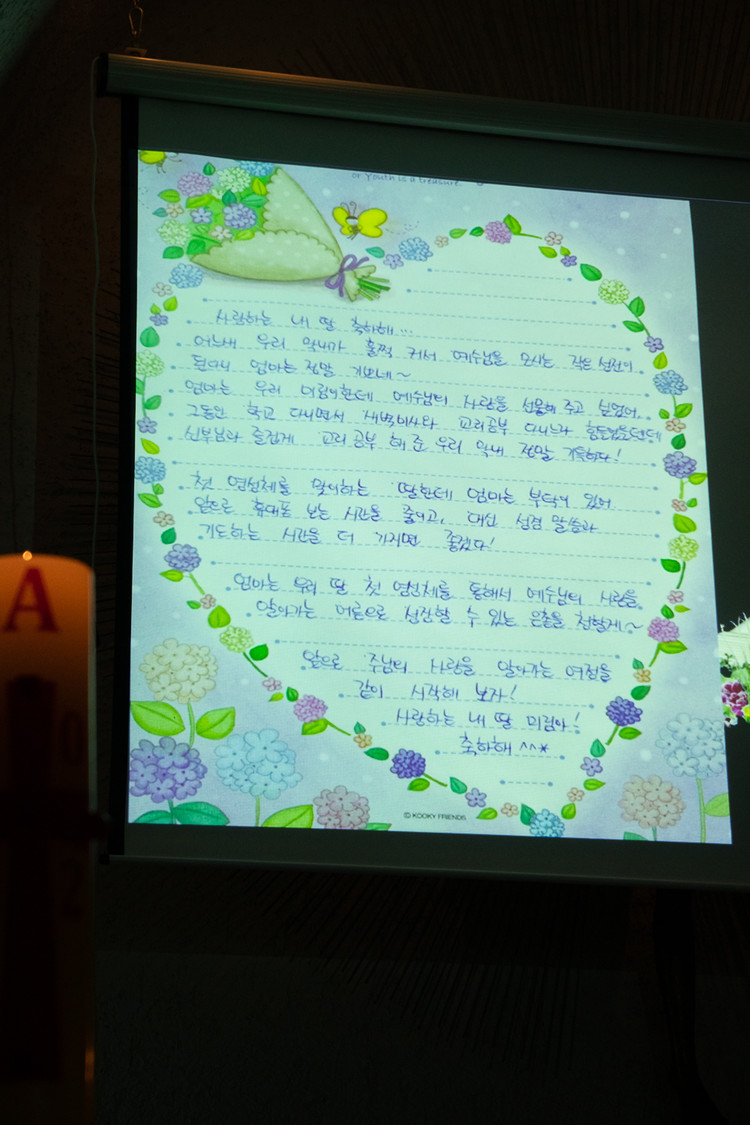 or Youth is a treasure.
사랑하는 내 딸 축하해...
어느새 우리 막내가 훌쩍 커서 예수님을 모시는 작은 성전이
된다니 엄마는 정말 기쁘네~
엄마는 우리 미검이한테 예수님의 사랑을 선물해 주고 싶었어.
그동안 학교 다니면서 새벽미사와 교리공부 다니느라 힘들었을텐데
신부님과 즐겁게 교리공부 해 준 우리 막내 정말 기특하다!
첫 영성체를 맞이하는 딸한테 엄마는 부탁이 있어
앞으로 휴대폰 보는 시간을 줄이고, 대신 성경 말씀과
기도하는 시간을 더 가지면 좋겠다!
엄마는 우리 딸 첫 영성체를 통해서 예수님의 사랑을
알아가는 어른으로 성장할 수 있는 믿음을 청할게~
앞으로 주님의 사랑을 알아가는 여정을
같이 시작해 보자!
사랑하는 내 딸
축하해 ^^*
© KOOKY FRIENDS
A
0
2